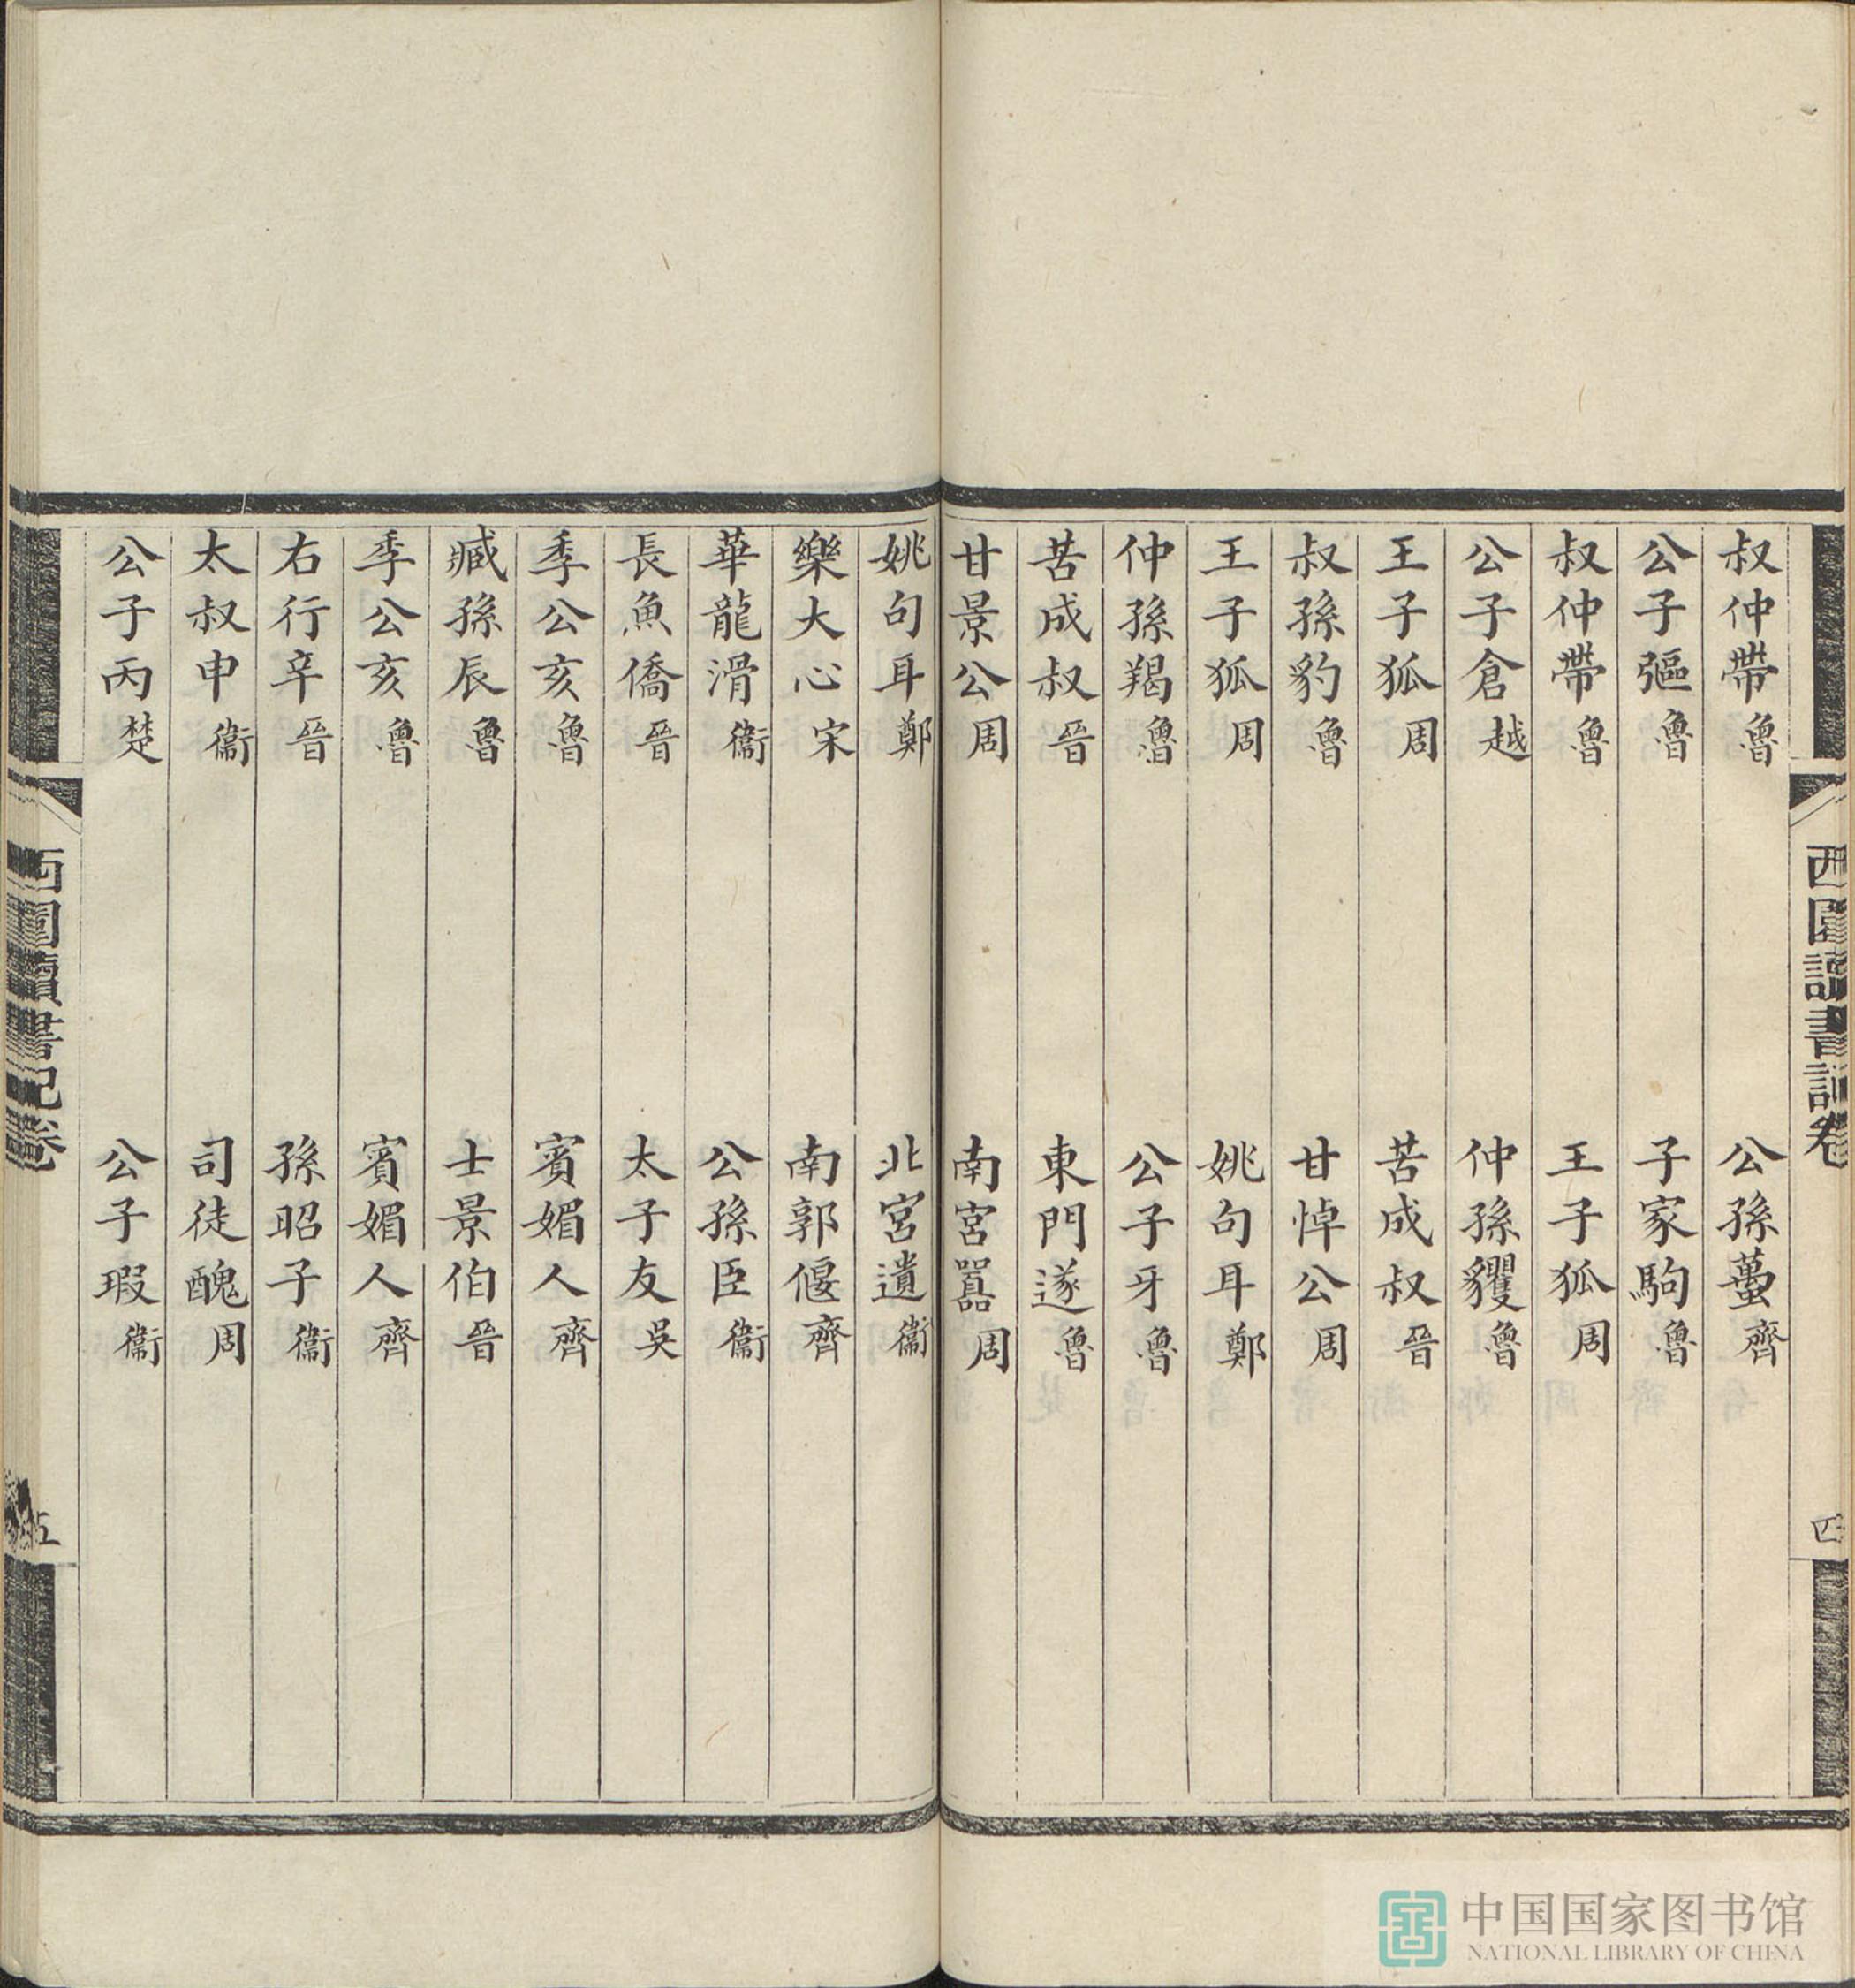 叔仲帶魯 公孫蠆齊
公子彄魯 子家駒魯
叔仲帶魯 王子狐周
公子倉越 仲孫貜魯
王子狐周 苦成叔晉
叔孫豹魯 甘悼公周
王子狐周 姚句耳鄭
仲孫羯魯 公子牙魯
苦成叔晉 東門遂魯
甘景公周 南宮嚚周
西圃讀書記卷
四
姚句耳鄭 北宮遺衞
樂大心宋 南郭偃齊
華龍滑衞 公孫臣衞
長魚僑晉 太子友吳
季公亥魯 賓媚人齊
臧孫辰魯 士景伯晉
季公亥魯 賓媚人齊
右行辛晉 孫昭子衞
太叔申衞 司徒醜周
公子丙楚 公子瑕衞
西圃讀書記卷
五
中国国家图书馆
NATIONAL LIBRARY OF CHINA